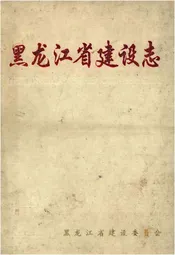 黑龙江省建设志
黑龙江省建设委员会